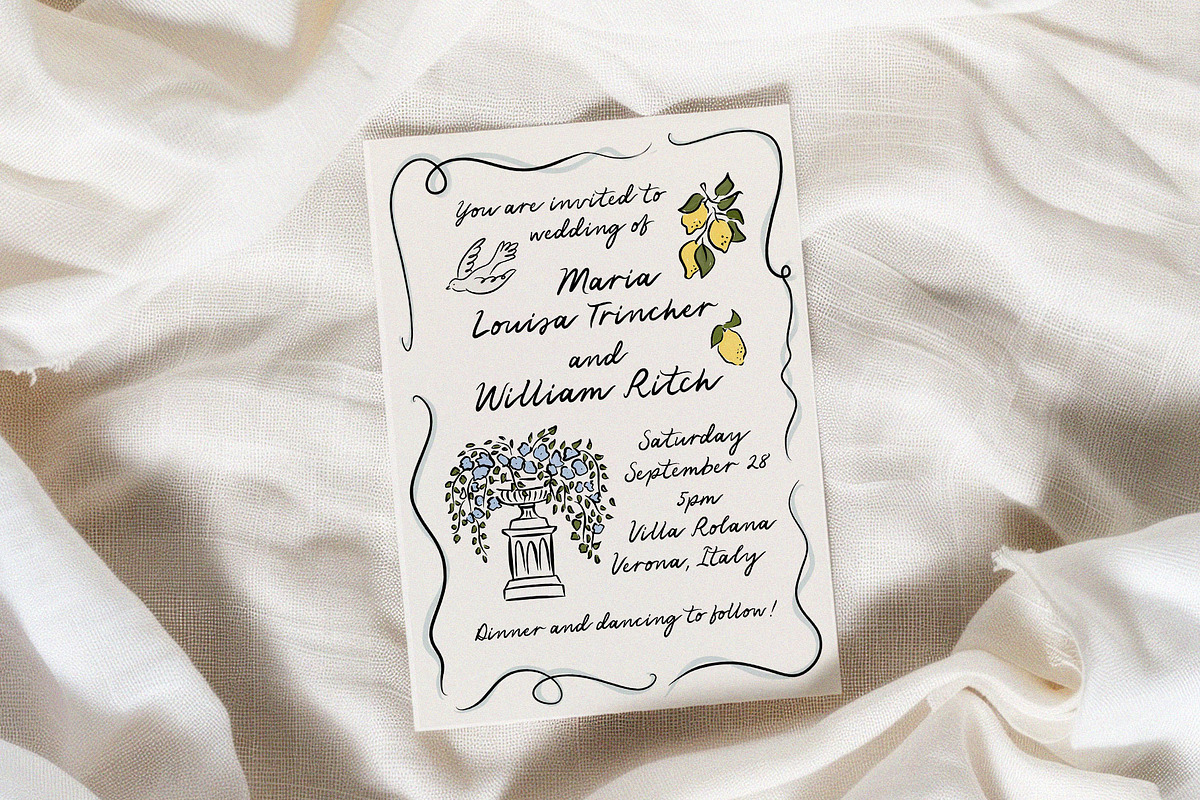 You are invited to
wedding of
Maria
Louisa Trincher
and
William Ritch
Saturday
September 28
5pm
Villa Rolana
Verona, Italy
Dinner and dancing to follow!